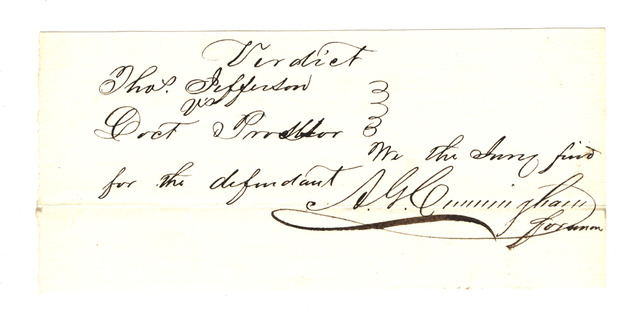 Verdict
Thos. Jefferson
vs
Doct Prosttor
We the Jury find
for the defendant A. G. Cunningham
foreman